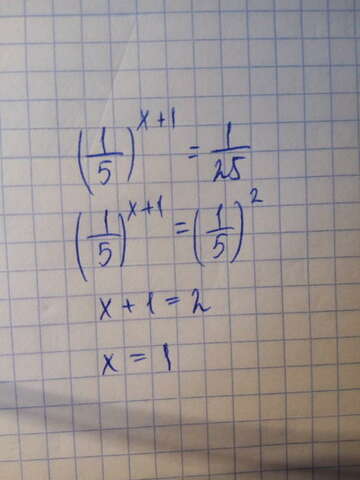 (1/5)^(x+1) = 1/25
(1/5)^(x+1) = (1/5)^2
x + 1 = 2
x = 1